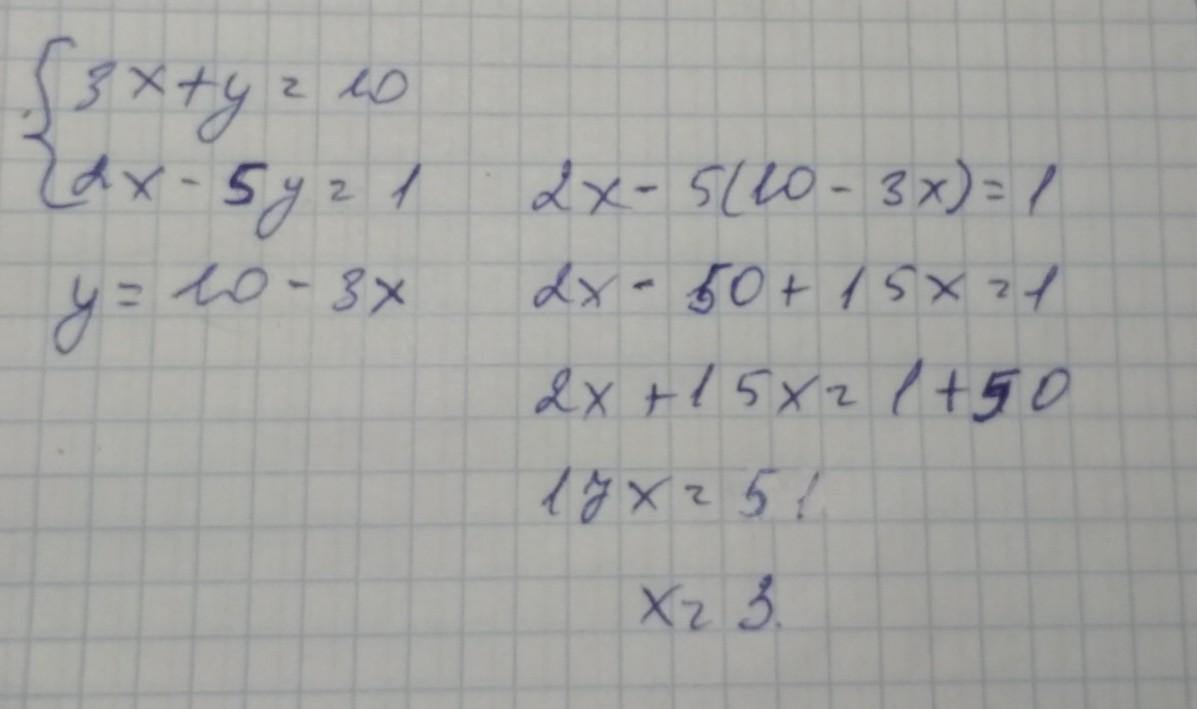 3x+y=10
2x-5y=1
y=10-3x
2x-5(10-3x)=1
2x-50+15x=1
2x+15x=1+50
17x=51
x=3